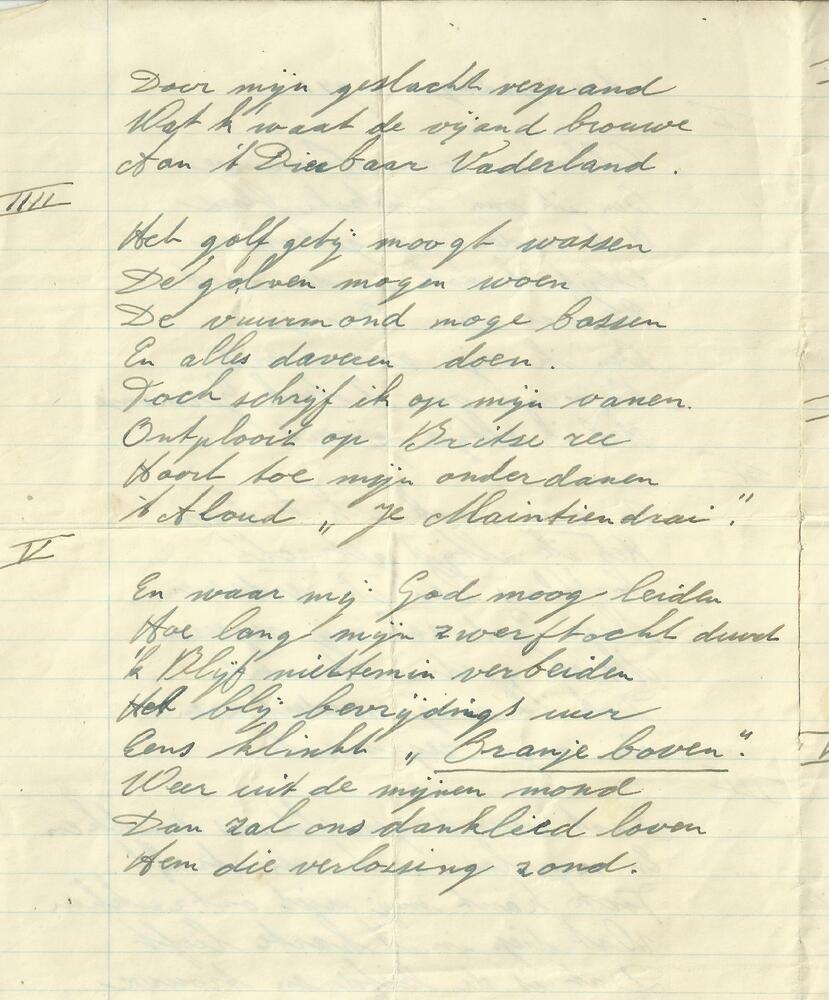 Door mijn geslacht verpand
Wat k waat de vijand brouwe
Aan 't Dierbaar Vaderland.
IIII
Het golf getij moogt wassen
De golven mogen woen
De vuurmond moge bassen
En alles daveren doen.
Toch schrijf ik op mijn vanen.
Ontplooit op Britse zee
Hoort toe mijn onderdanen
't Aloud „ Je Maintiendrai ".
V
En waar mij God moog leiden
Hoe lang mijn zwerftocht duurt
'k Blijf niettemin verbeiden
Het blij bevrijdings uur
Eens klinkt „ Oranje boven".
Weer uit de mijnen mond
Dan zal ons danklied loven
Hem die verlossing zond.